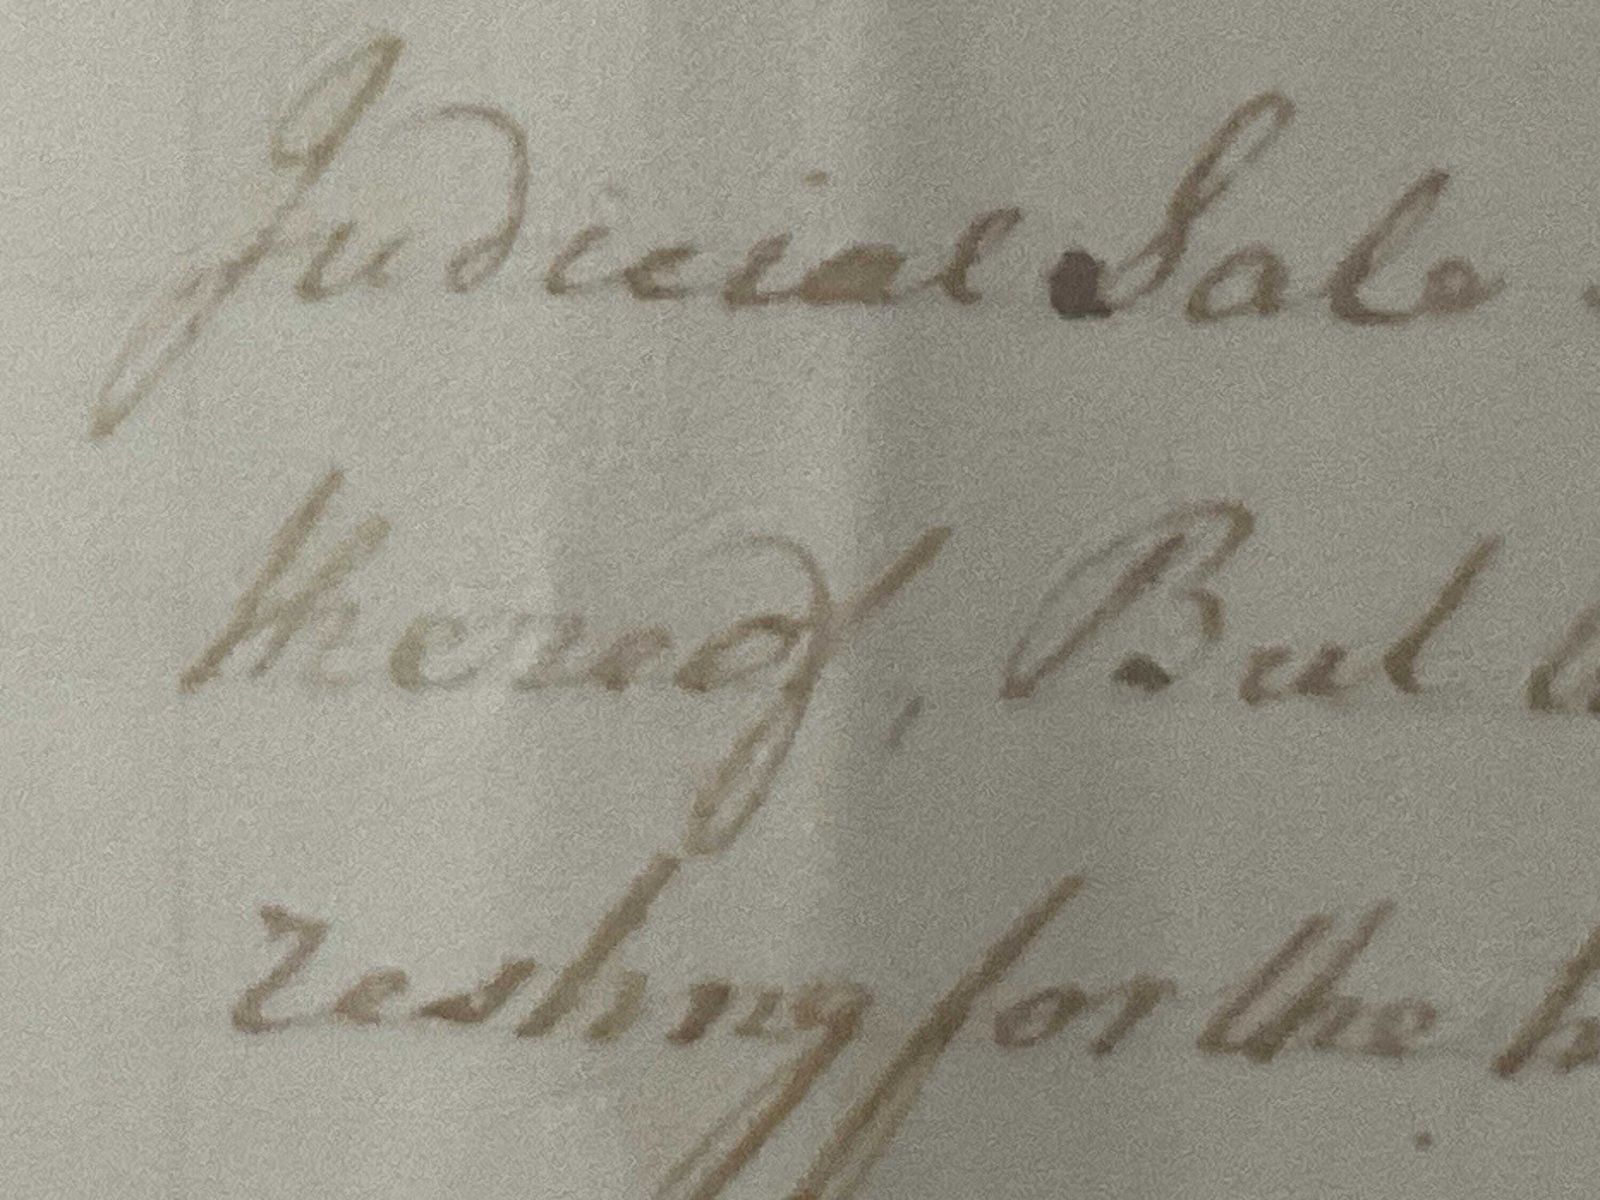 Judicial Sale
thereof, But
resting for the